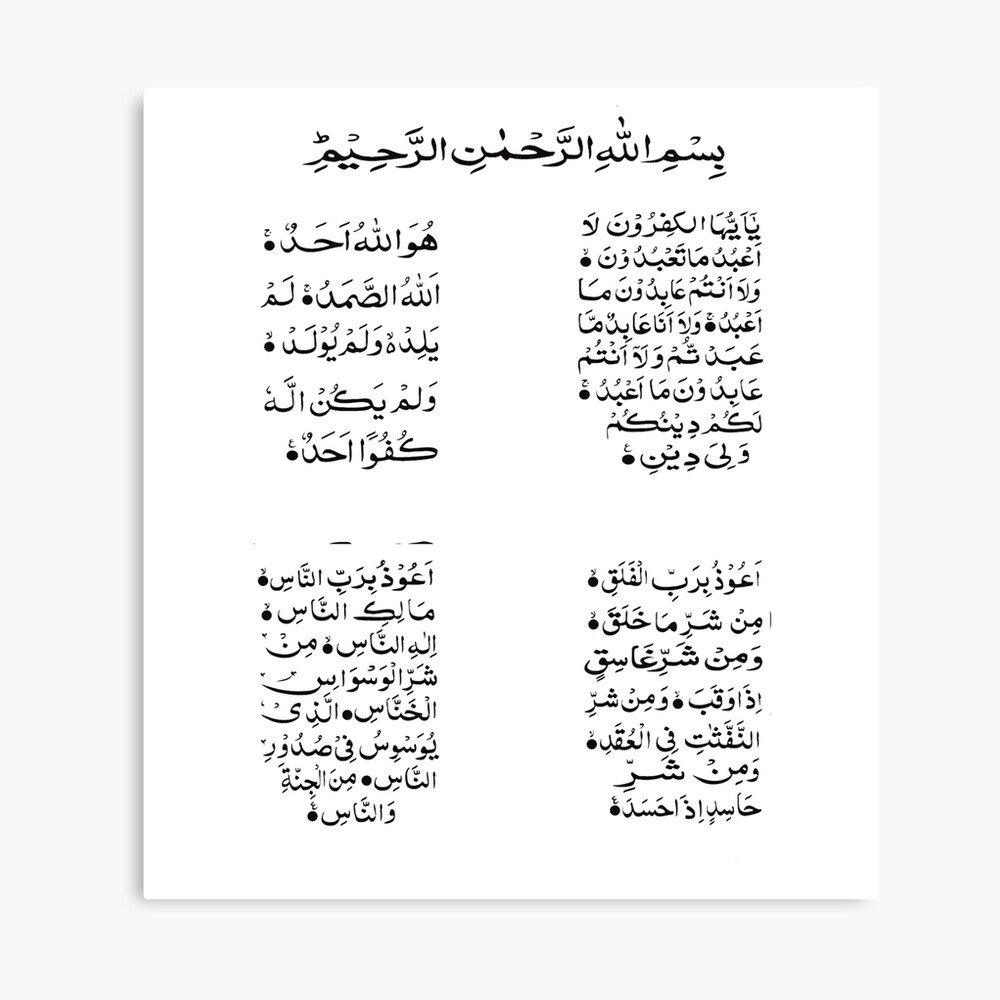 بِسْمِ اللهِ الرَّحْمٰنِ الرَّحِيْمِ
يٰٓاَيُّهَا الكٰفِرُوْنَ لَا
اَعْبُدُ مَا تَعْبُدُوْنَ
وَلَا اَنْتُمْ عَابِدُوْنَ مَا
اَعْبُدُ وَلَا اَنَا عَابِدٌ مَّا
عَبَدْتُّمْ وَلَآ اَنْتُمْ
عَابِدُوْنَ مَا اَعْبُدُ
لَكُمْ دِيْنُكُمْ
وَلِىَ دِيْنِ
هُوَ اللهُ اَحَدٌ
اَللهُ الصَّمَدُ لَمْ
يَلِدْ وَلَمْ يُوْلَدْ
وَلَمْ يَكُنْ الَّهٗ
كُفُوًا اَحَدٌ
اَعُوْذُ بِرَبِّ الْفَلَقِ
مِنْ شَرِّ مَا خَلَقَ
وَمِنْ شَرِّ غَاسِقٍ
اِذَا وَقَبَ وَمِنْ شَرِّ
النَّفّٰثٰتِ فِي الْعُقَدِ
وَمِنْ شَرِّ
حَاسِدٍ اِذَا حَسَدَ
اَعُوْذُ بِرَبِّ النَّاسِ
مَالِكِ النَّاسِ
اِلٰهِ النَّاسِ مِنْ
شَرِّ الْوَسْوَاسِ
الْخَنَّاسِ الَّذِىْ
يُوَسْوِسُ فِىْ صُدُوْرِ
النَّاسِ مِنَ الْجِنَّةِ
وَالنَّاسِ